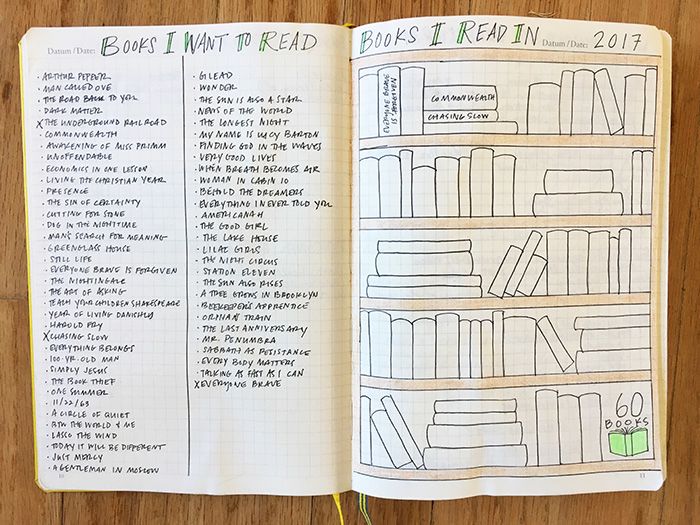 Datum / Date:
BOOKS I WANT TO READ
· ARTHUR PEPPER
· MAN CALLED OVE
· THE ROAD BACK TO YOU
· DARK MATTER
X THE UNDERGROUND RAILROAD
· COMMONWEALTH
· AWAKENING OF MISS PRIMM
· UNOFFENDABLE
· ECONOMICS IN ONE LESSON
· LIVING THE CHRISTIAN YEAR
· PRESENCE
· THE SIN OF CERTAINTY
· CUTTING FOR STONE
· DOG IN THE NIGHTTIME
· MAN'S SEARCH FOR MEANING
· GREENGLASS HOUSE
· STILL LIFE
· EVERYONE BRAVE IS FORGIVEN
· THE NIGHTINGALE
· THE ART OF ASKING
· TEACH YOUR CHILDREN SHAKESPEARE
· YEAR OF LIVING DANISHLY
· HAROLD FRY
X CHASING SLOW
· EVERYTHING BELONGS
· 100-YR-OLD MAN
· SIMPLY JESUS
· THE BOOK THIEF
· ONE SUMMER
· 11/22/63
· A CIRCLE OF QUIET
· BTW THE WORLD & ME
· LASSO THE WIND
· TODAY IT WILL BE DIFFERENT
· JUST MERCY
· A GENTLEMAN IN MOSCOW
· GILEAD
· WONDER
· THE SUN IS ALSO A STAR
· NEWS OF THE WORLD
· THE LONGEST NIGHT
· MY NAME IS LUCY BARTON
· FINDING GOD IN THE WAVES
· VERY GOOD LIVES
· WHEN BREATH BECOMES AIR
· WOMAN IN CABIN 10
· BEHOLD THE DREAMERS
· EVERYTHING I NEVER TOLD YOU
· AMERICANAH
· THE GOOD GIRL
· THE LAKE HOUSE
· LILAC GIRLS
· THE NIGHT CIRCUS
· STATION ELEVEN
· THE SUN ALSO RISES
· A TREE GROWS IN BROOKLYN
· BEEKEEPER'S APPRENTICE
· ORPHAN TRAIN
· THE LAST ANNIVERSARY
· MR. PENUMBRA
· SABBATH AS RESISTANCE
· EVERY BODY MATTERS
· TALKING AS FAST AS I CAN
X EVERYONE BRAVE
10
BOOKS I READ IN
Datum / Date:
2017
EVERYONE BRAVE
IS FORGIVEN
COMMONWEALTH
CHASING SLOW
60
BOOKS
11